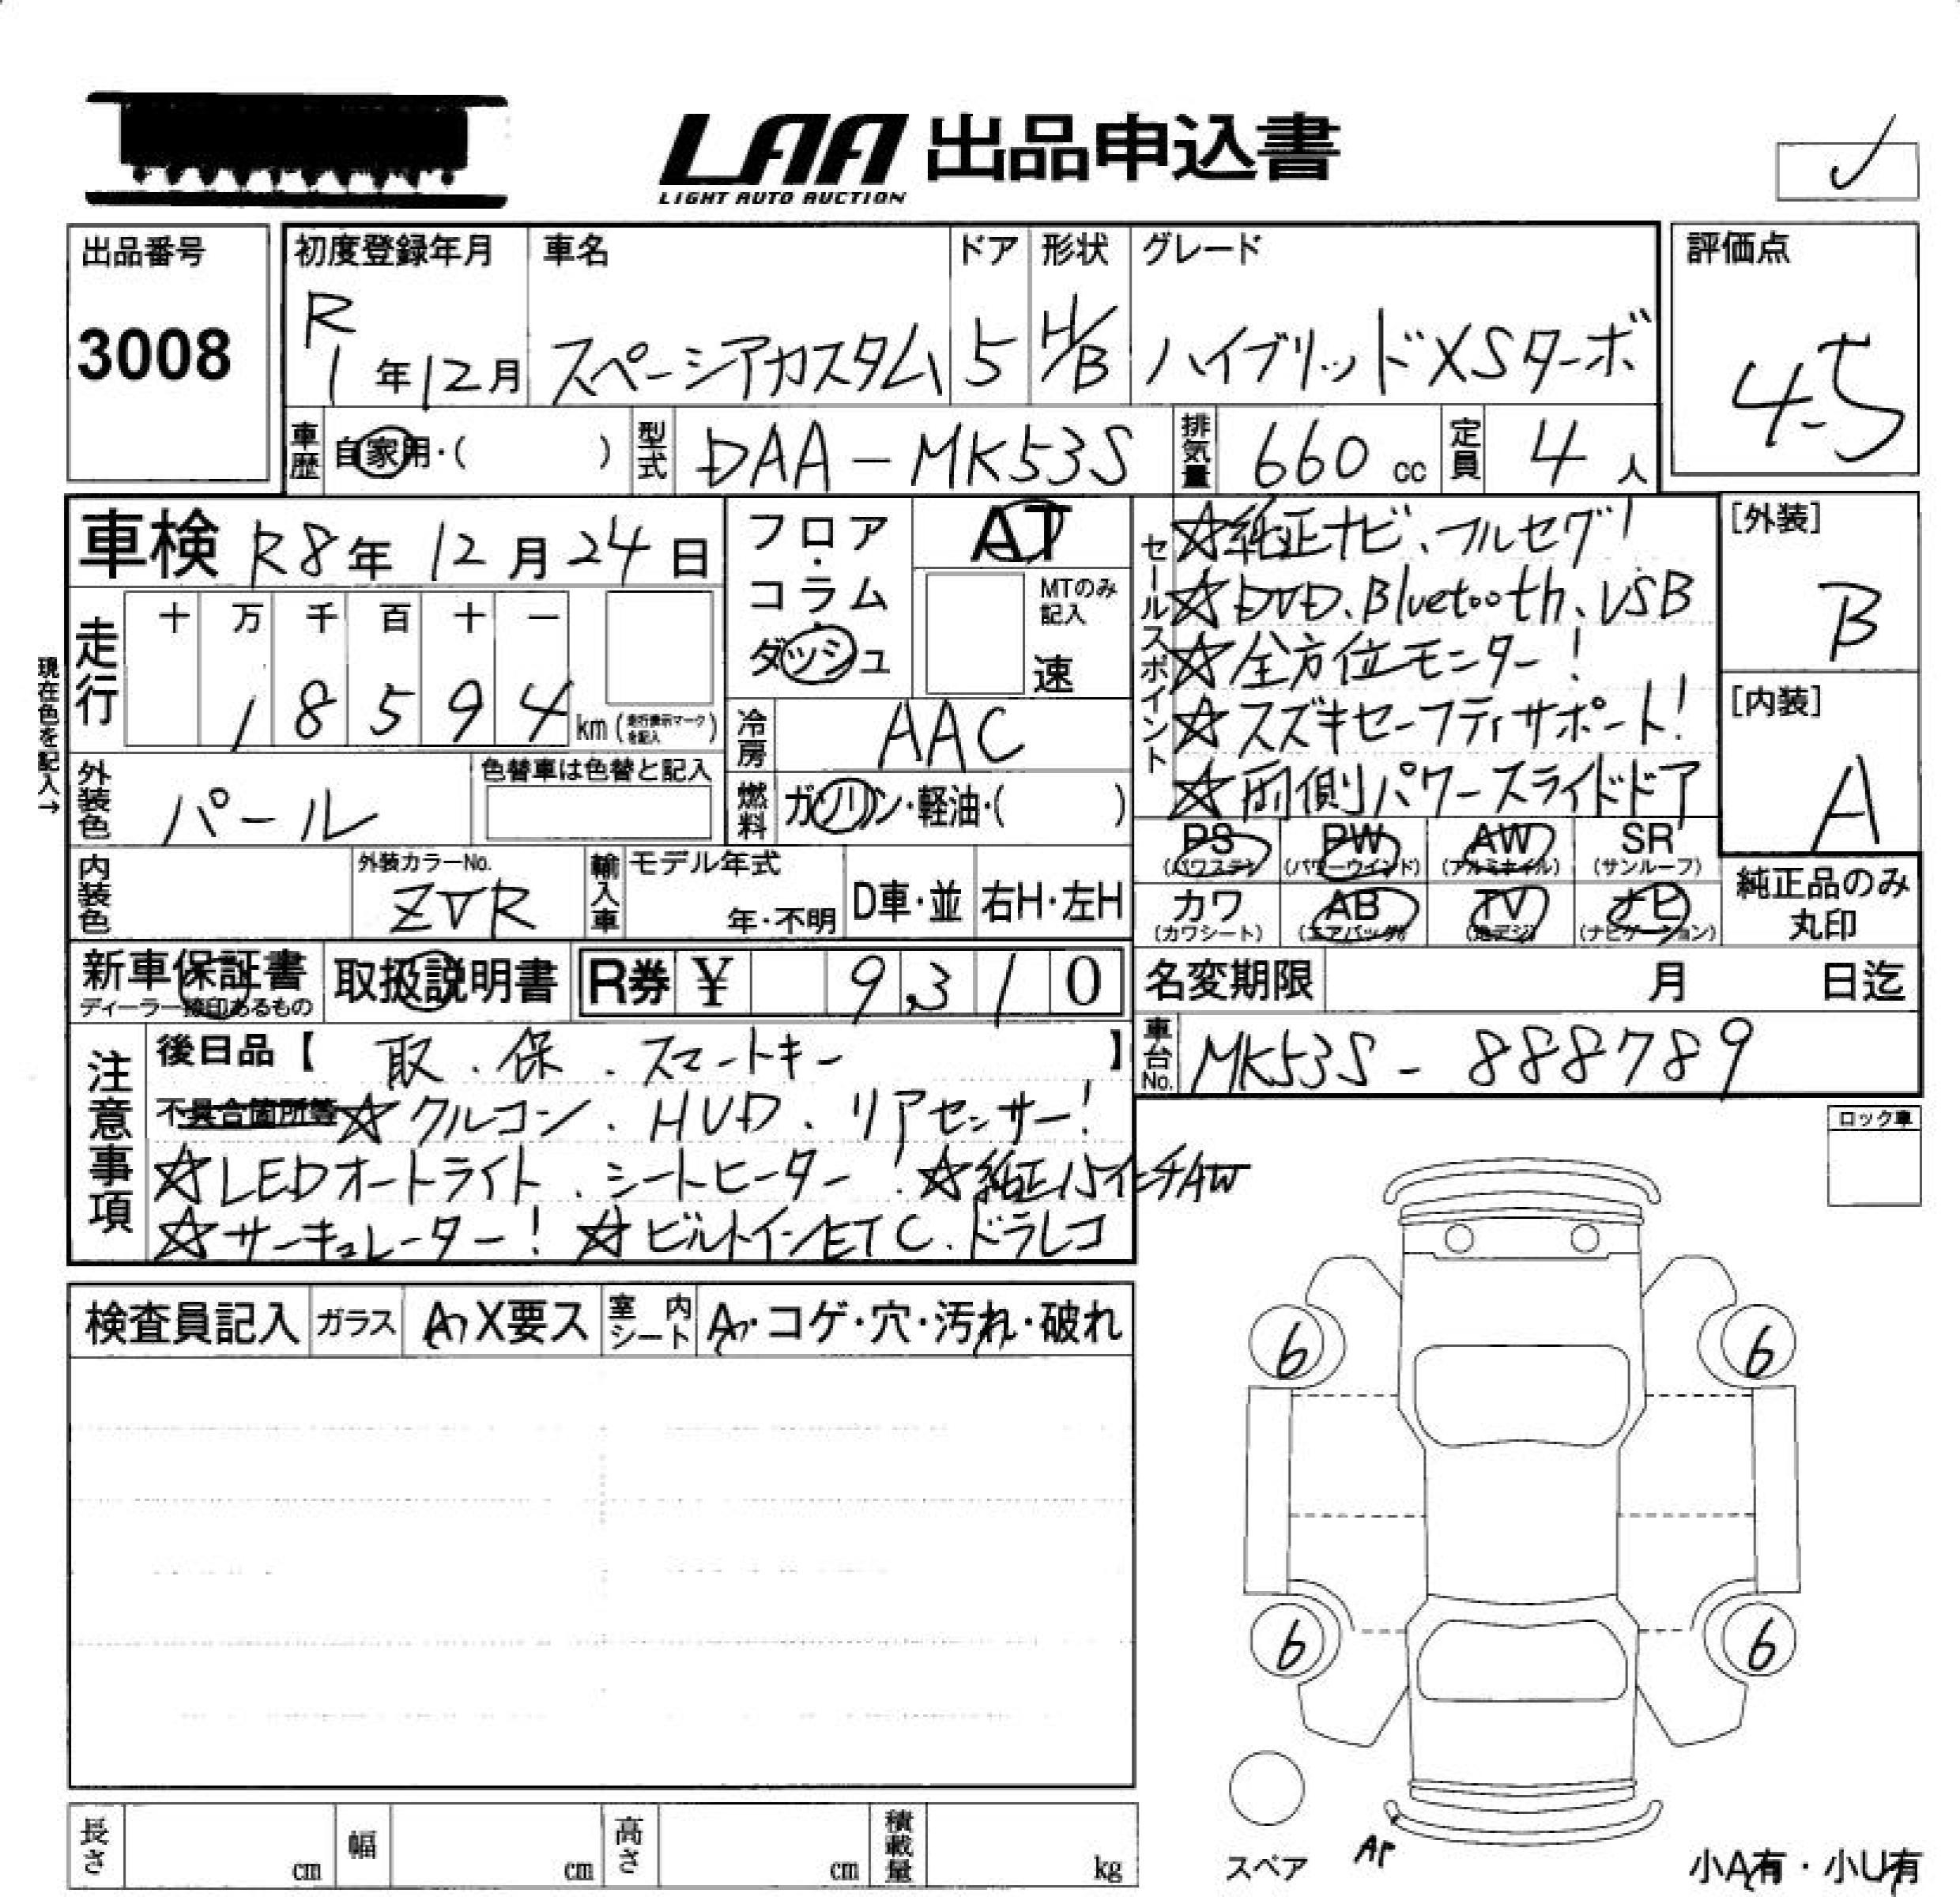 LAA 出品申込書
LIGHT AUTO AUCTION
出品番号
3008
初度登録年月
R1年12月
車名
スペーシアカスタム
ドア
5
形状
H/B
グレード
ハイブリッドXSターボ
評価点
4.5
車歴
自家用・( )
型式
DAA-MK53S
排気量
660 cc
定員
4人
車検 R8年12月24日
フロア・コラム・ダッシュ
AT
MTのみ記入
速
セールスポイント
☆純正ナビ、フルセグ!
☆DVD、Bluetooth、USB
☆全方位モニター!
☆スズキセーフティサポート!
☆両側パワースライドドア
[外装]
B
[内装]
A
現在色を記入→
走行
十 万 千 百 十 一
18594
km (走行表示マークを記入)
冷房
AAC
外装色
パール
色替車は色替と記入
燃料
ガソリン・軽油・( )
PS
(パワステ)
PW
(パワーウインド)
AW
(アルミホイル)
SR
(サンルーフ)
カワ
(カワシート)
AB
(エアバッグ)
TV
(地デジ)
ナビ
(ナビゲーション)
純正品のみ
丸印
内装色
外装カラーNo.
ZVR
輸入車
モデル年式
年・不明
D車・並
右H・左H
新車保証書
ディーラー捺印あるもの
取扱説明書
R券 ¥ 9,310
名変期限 月 日迄
車台No.
MK53S-888789
注意事項
後日品【 取.保.スマートキー 】
不具合箇所等 ☆クルコン.HUD.リアセンサー!
☆LEDオートライト.シートヒーター! ☆純正15インチAW
☆サーキュレーター! ☆ビルトインETC.ドラレコ
ロック車
検査員記入
ガラス
A X要ス
室内シート
A・コゲ・穴・汚れ・破れ
6
6
6
6
長さ cm
幅 cm
高さ cm
積載量 kg
スペア
AP
小A有・小U有